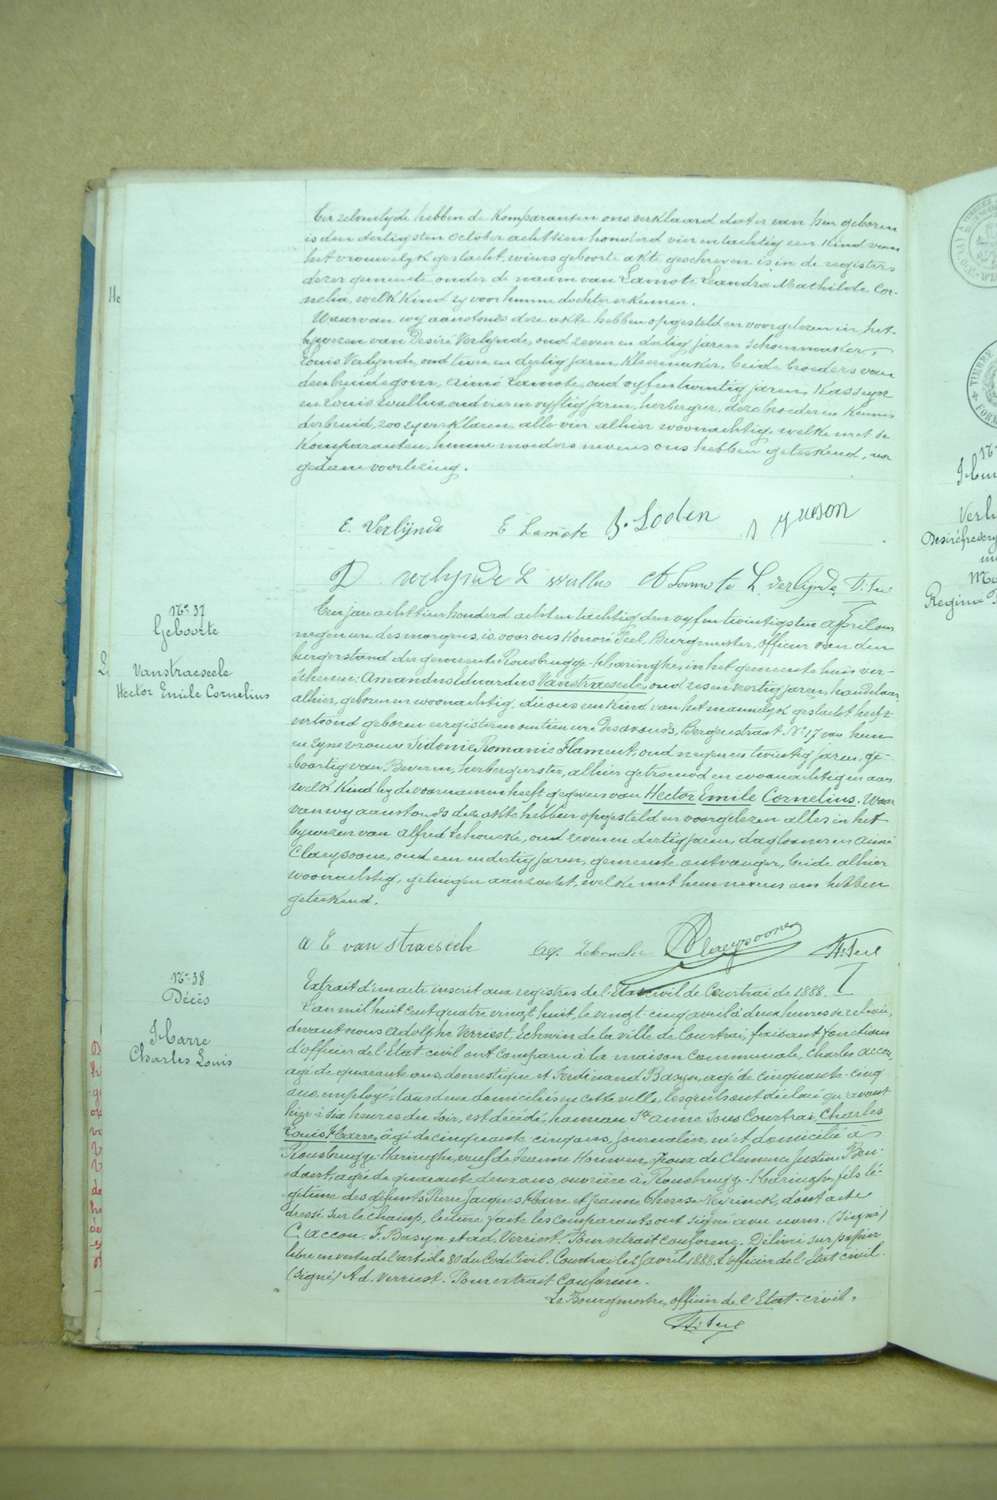 Ter zelvertyde hebben de Komparanten ons verklaard dat er van hen geboren
is den dertigsten October achttien honderd vier en tachtig een Kind van
het vrouwelyk geslacht, wiens geboorte akte geschreven is in de registers
dezer gemeente onder de naam van Lamote Leandra Mathilde Cor-
nelia, welk Kind zy voor hunne dochter erkennen.
Waarvan wy aanstonds deze akte hebben opgesteld en voorgelezen in het
bywezen van Désiré Verlynde, oud zeven en dertig jaren schoenmaker,
Louis Verlynde, oud een en dertig jaren Kleermaker, beide broeders van
den bruidegom, Aimé Lamote, oud vyf en twintig jaren, Kasseyer
en Louis Wullus oud vier en vyftig jaren, herbergier, deze broeder en Kennis
der bruid, zoo zy verklaren, alle vier alhier woonachtig, welke met de
Komparanten, hunne moeders nevens ons hebben geteekend, na
gedane voorlezing.
E. Verlijnde E Lamote B. Loden
D. verlynde L wullus A Lamote L. verlynde H. Feel
N° 37
Geboorte
Vanstraeseele
Hector Emile Cornelius
Ten jare achttien honderd acht en tachtig den vyf en twintigsten April om
negen ure des morgens, is voor ons Honoré Feel, Burgmeester, officier van den
burgerstand der gemeente Rousbrugge-Haringhe, in het gemeente huis ver-
schenen: Amandus Eduardus Vanstraeseele, oud zes en veertig jaren, handelaar
alhier, geboren en woonachtig, die ons een kind van het mannelyk geslacht heeft
vertoond geboren eergisteren om tien ure des avonds, Bergenstraat, N° 17 van hem
en zyne vrouw Sidonie Romanie Flament, oud negen en twintig jaren, ge-
boortig van Beveren, herbergierster, alhier getrouwd en woonachtig en aan
welk Kind hy de voornamen heeft gegeven van Hector Emile Cornelius. Waar
van wy aanstonds deze akte hebben opgesteld en voorgelezen alles in het
bywezen van Alfred Lehoucke, oud zeven en dertig jaren, daglooner en Aimé
Claeysoone, oud een en dertig jaren, gemeente ontvanger, beide alhier
woonachtig, getuigen aanzocht, welke met hem nevens ons hebben
geteekend.
A E van straeseele Alf. Lehoucke A Claeysoone H. Feel
N° 38
Décès
Harre
Charles Louis
Extrait d'un acte inscrit aux registres de l'Etat civil de Courtrai de 1888.
L'an mil huit cent quatre vingt huit, le vingt cinq avril à deux heures de relevée,
devant nous Adolphe Verriest, Echevin de la ville de Courtrai, faisant fonctions
d'officier de l'Etat civil ont comparu à la maison communale, Charles Accou,
âgé de quarante ans, domestique et Ferdinand Basyn, âgé de cinquante cinq
ans, employé, tous deux domiciliés en cette ville, lesquels ont déclaré qu'avant
hier à six heures du soir, est décédé, hameau Ste Anne sous Courtrai, Charles
Louis Harre, âgé de cinquante cinq ans, journalier, né et domicilié à
Rousbrugge-Haringhe, veuf de Jeanne Houwen, époux de Clemence Justine Bou-
daert, âgée de quarante deux ans, ouvrière à Rousbrugge-Haringhe, fils lé-
gitime des défunts Pierre Jacques Harre et Jeanne Thérèse Neirinck, dont acte
dressé sur le champ, lecture faite les comparants ont signé avec nous. (Signé)
C. Accou. F. Basyn et Ad. Verriest. Pour extrait conforme. Délivré sur papier
libre en vertu de l'article 80 du Code Civil. Courtrai le 25 avril 1888. L'officier de l'Etat civil.
(Signé) Ad. Verriest. Pour extrait conforme.
Le Bourgmestre, officier de l'Etat-civil.
H. Feel